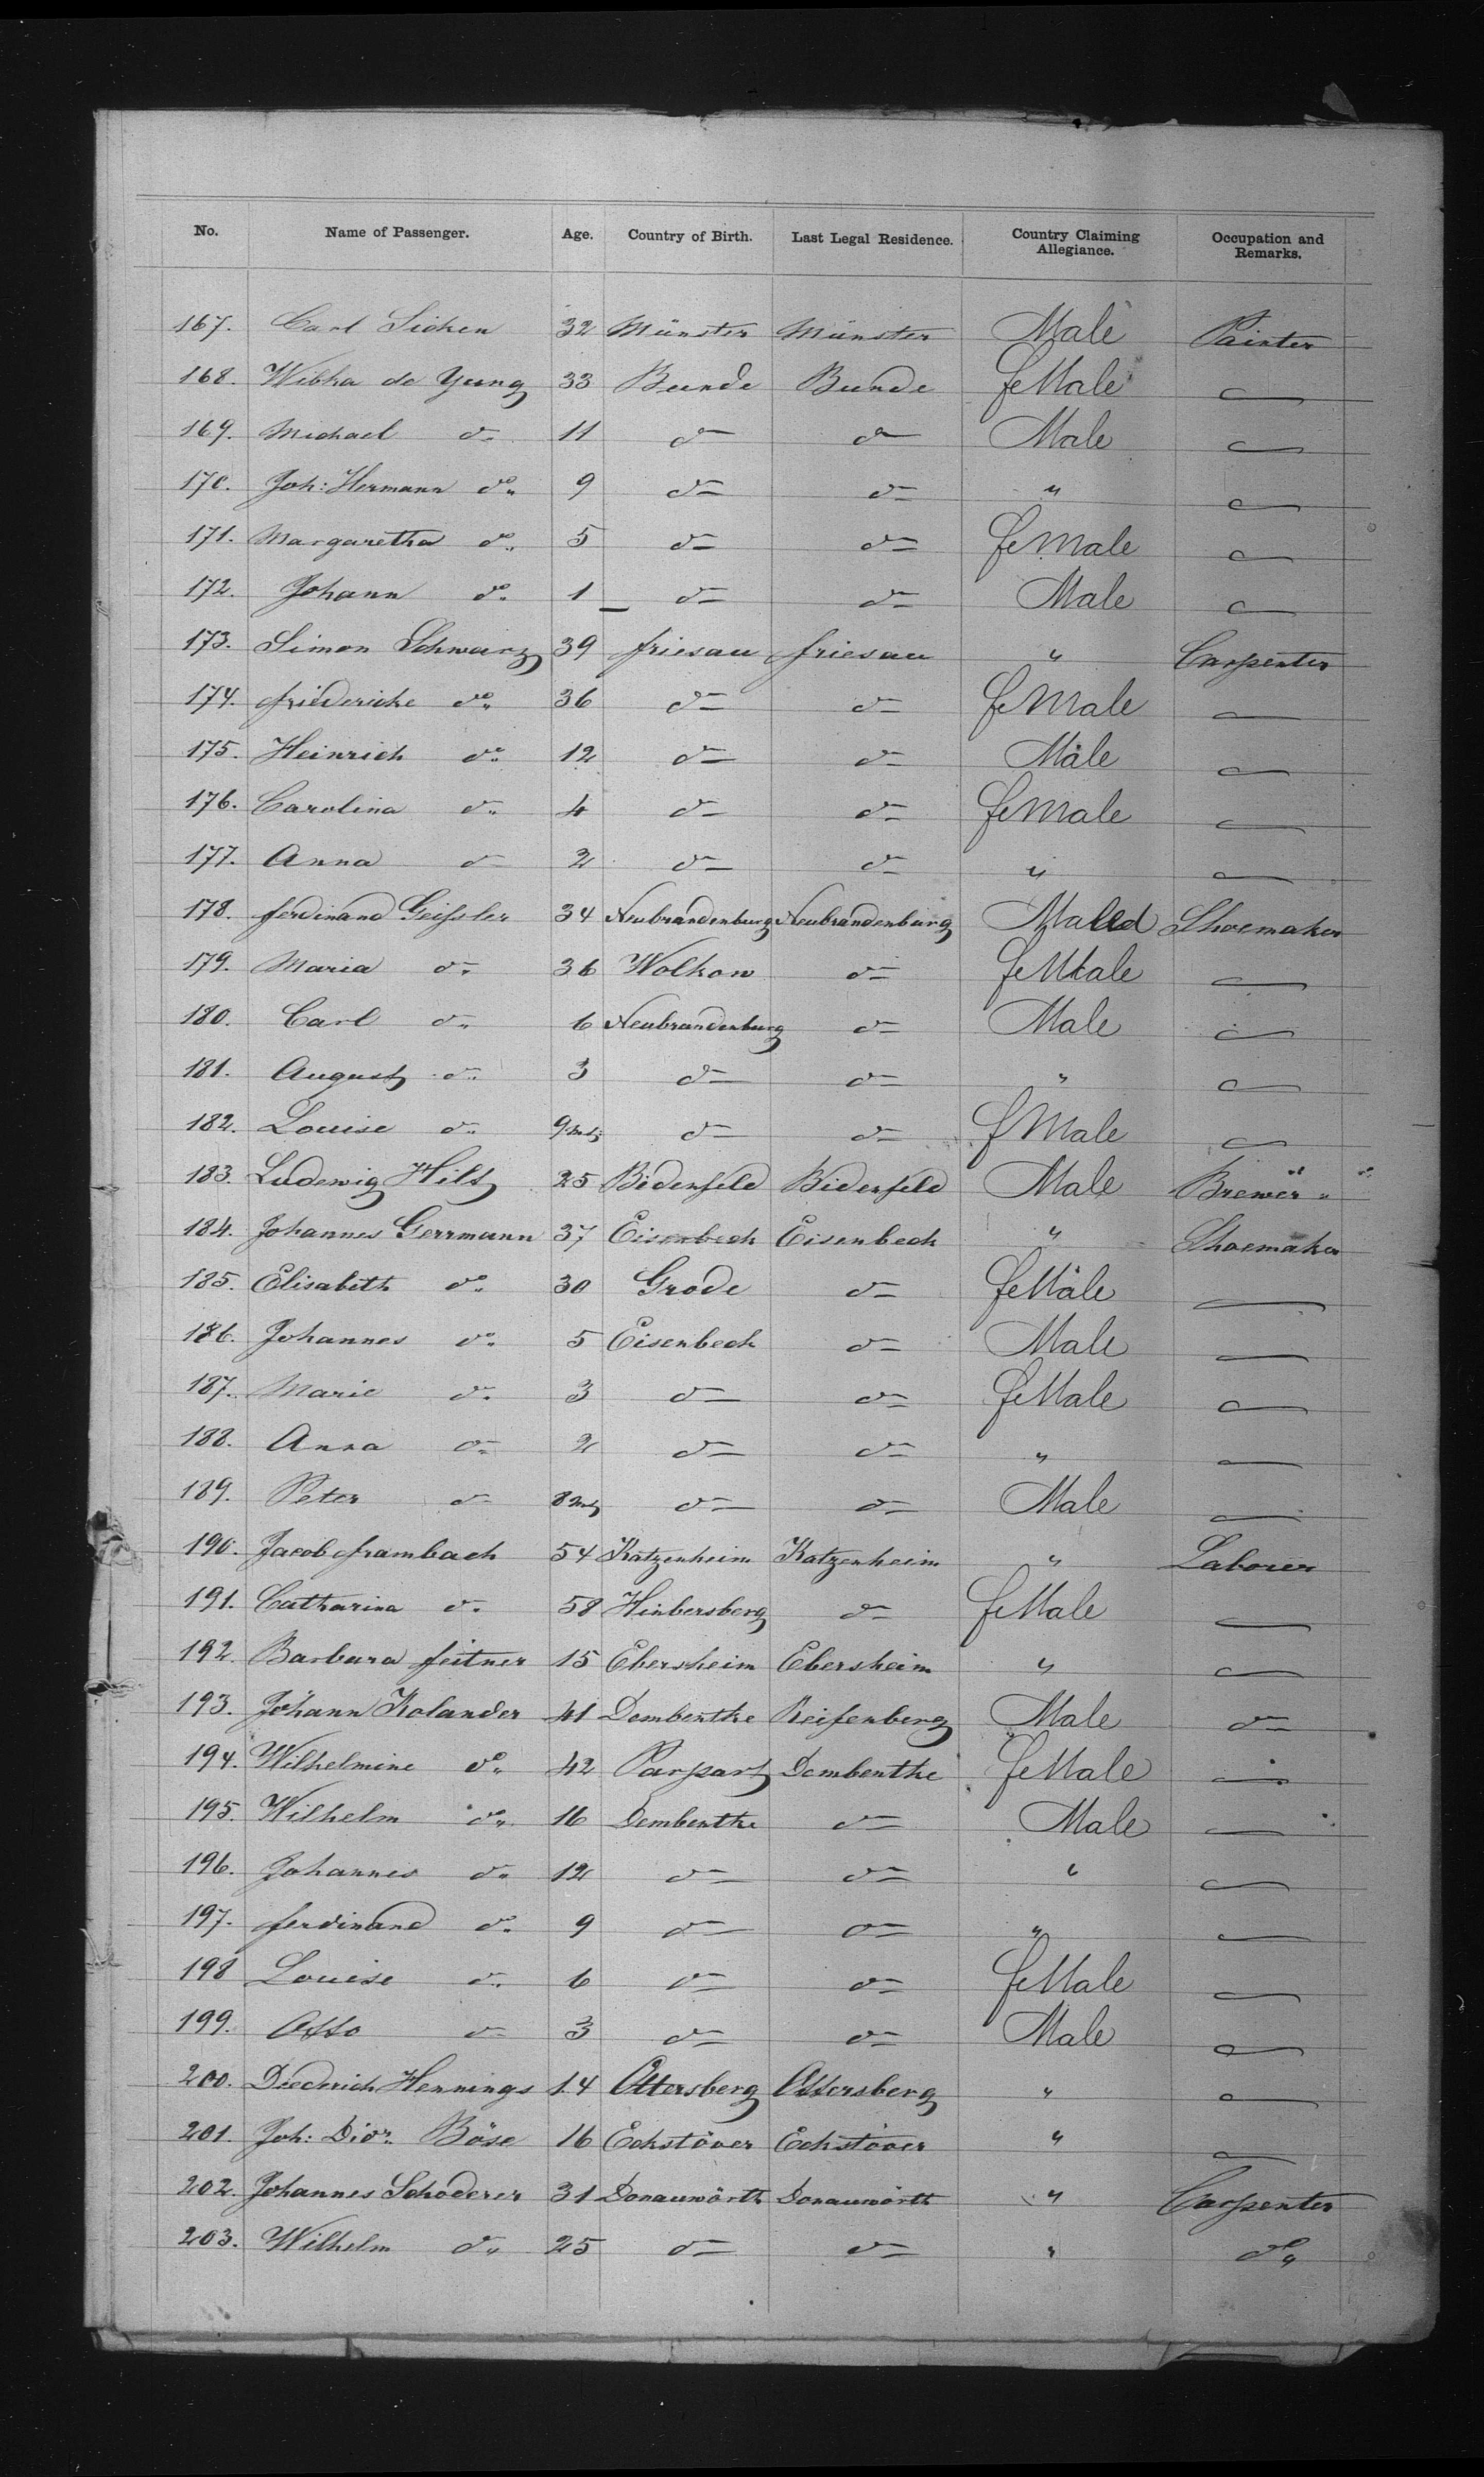 No. Name of Passenger. Age. Country of Birth. Last Legal Residence. Country Claiming Allegiance. Occupation and Remarks.
167. Carl Sicken 32 Münster Münster Male Painter
168. Wibka de Yung 33 Bunde Bunde feMale —
169. Michael do 11 do do Male —
170. Joh: Hermann do 9 do do " —
171. Margaretha do 5 do do feMale —
172. Johann do 1 do do Male —
173. Simon Schwarz 39 friesau friesau " Carpenter
174. friedericke do 36 do do feMale —
175. Heinrich do 12 do do Male —
176. Carolina do 4 do do feMale —
177. Anna do 2 do do " —
178. ferdinand Geissler 34 Neubrandenburg Neubrandenburg Male Shoemaker
179. Maria do 36 Wolkow do feMale —
180. Carl do 6 Neubrandenburg do Male —
181. August do 3 do do " —
182. Louise do 9 do do fMale —
183. Ludewig Hilt 25 Bidenfeld Bidenfeld Male Brewer
184. Johannes Gerrmann 37 Eisenbech Eisenbech " Shoemaker
185. Elisabeth do 30 Grode do feMale —
186. Johannes do 5 Eisenbech do Male —
187. Marie do 3 do do feMale —
188. Anna do 2 do do " —
189. Peter do 8 do do Male —
190. Jacob frambach 54 Katzenheim Katzenheim " Laborer
191. Catharina do 58 Hinbersberg do feMale —
192. Barbara feitner 15 Ebersheim Ebersheim " —
193. Johann Kolander 41 Dembenthe Reifenberg Male do
194. Wilhelmine do 42 Parpart Dembenthe feMale —
195. Wilhelm do 16 Dembenthe do Male —
196. Johannes do 12 do do " —
197. ferdinand do 9 do do " —
198 Louise do 6 do do feMale —
199. Otto do 3 do do Male —
200. Diederich Hennings 14 Ottersberg Ottersberg " —
201. Joh: Dior. Böse 16 Eckstöver Eckstöver " —
202. Johannes Schoderer 31 Donauwörth Donauwörth " Carpenter
203. Wilhelm do 25 do do " do